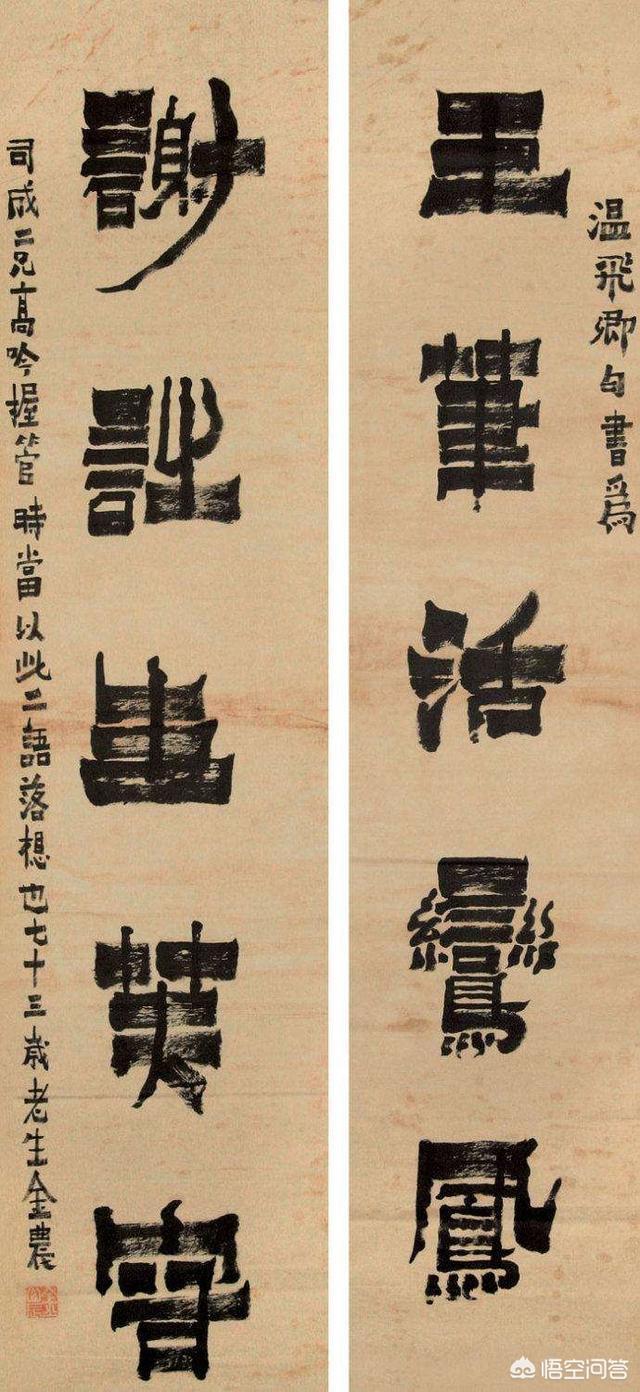 温飛卿句書為
王筆活鸞鳳
謝詩生芙蓉
司成二兄高吟握管時當以此二語落想也七十三歲老生金農
悟空问答